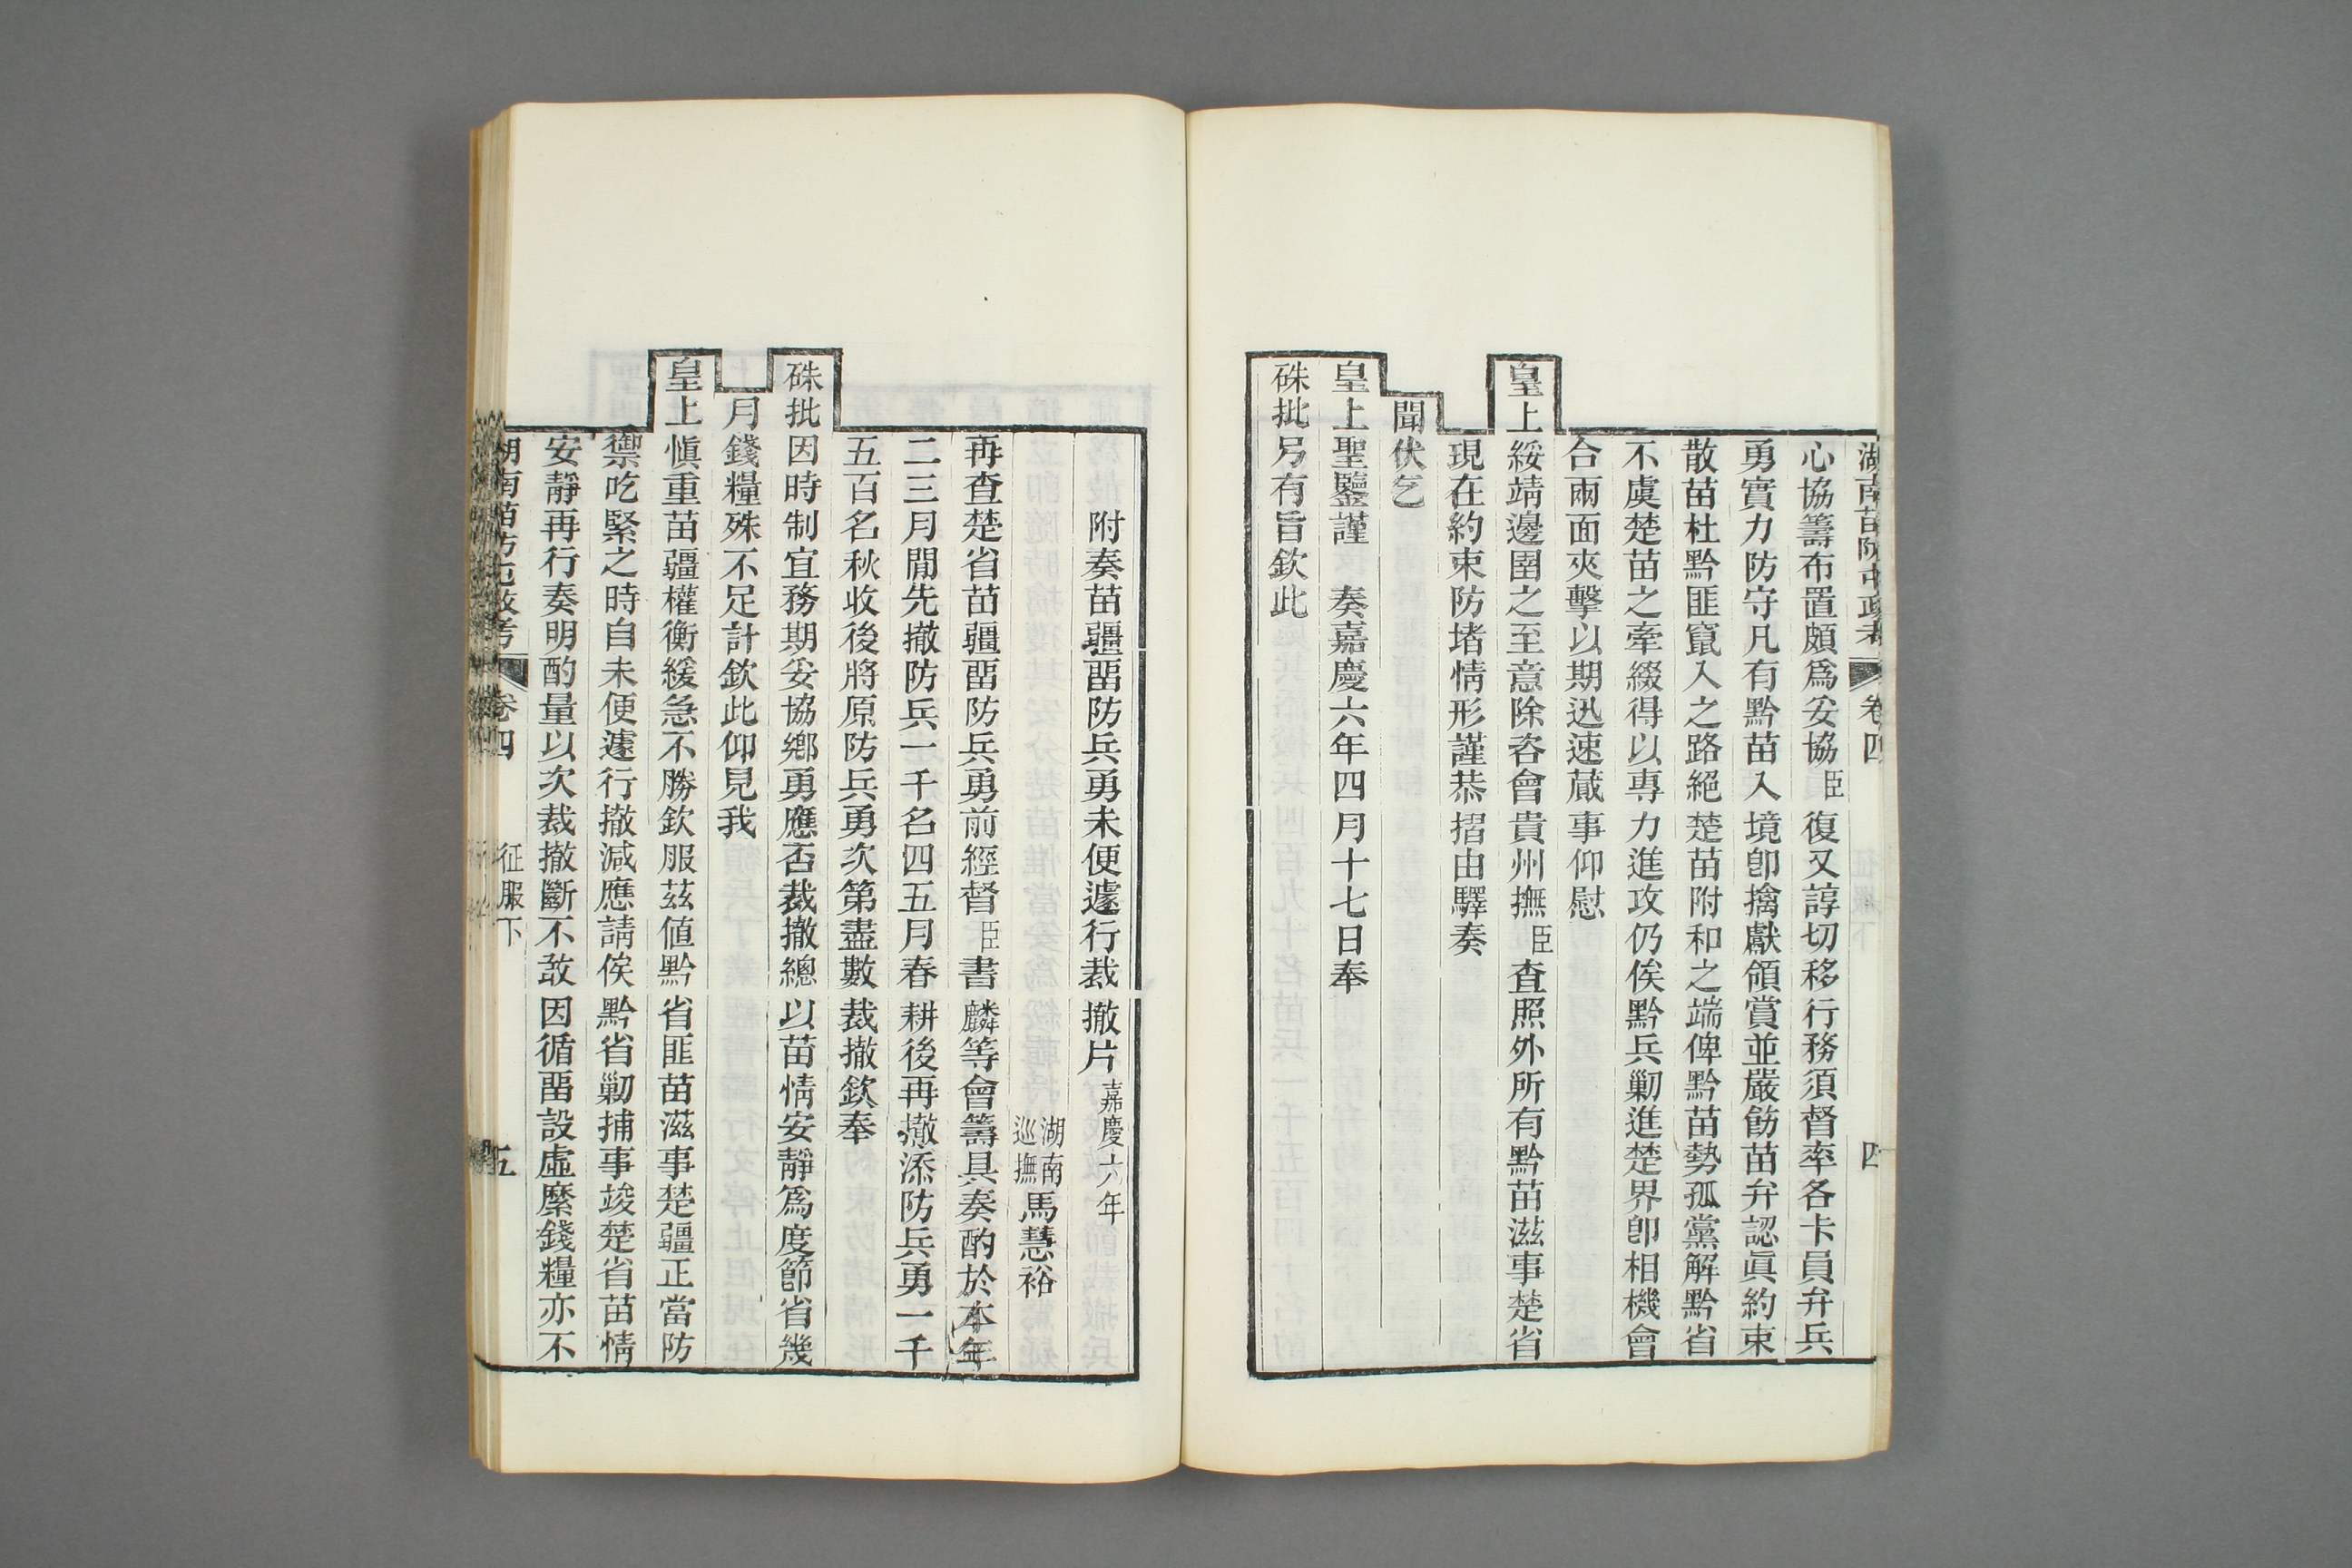 湖南苗防屯政考 卷四 四
心協籌布置頗爲妥協臣復又諄切移行務須督率各卡員弁兵
勇實力防守凡有黔苗入境卽擒獻領賞並嚴飭苗弁認眞約束
散苗杜黔匪竄入之路絕楚苗附和之端俾黔苗勢孤黨解黔省
不虞楚苗之牽綴得以專力進攻仍俟黔兵剿進楚界卽相機會
合兩面夾擊以期迅速蕆事仰慰
皇上綏靖邊圉之至意除咨會貴州撫臣查照外所有黔苗滋事楚省
現在約束防堵情形謹恭摺由驛奏
聞伏乞
皇上聖鑒謹 奏嘉慶六年四月十七日奉
硃批另有旨欽此
附奏苗疆畱防兵勇未便遽行裁撤片嘉慶六年
湖南巡撫馬慧裕
再查楚省苗疆畱防兵勇前經督臣書麟等會籌具奏酌於本年
二三月閒先撤防兵一千名四五月春耕後再撤添防兵勇一千
五百名秋收後將原防兵勇次第盡數裁撤欽奉
硃批因時制宜務期妥協鄉勇應否裁撤總以苗情安靜爲度節省幾
月錢糧殊不足計欽此仰見我
皇上愼重苗疆權衡緩急不勝欽服茲値黔省匪苗滋事楚疆正當防
禦吃緊之時自未便遽行撤減應請俟黔省剿捕事竣楚省苗情
安靜再行奏明酌量以次裁撤斷不敢因循畱設虛糜錢糧亦不
湖南苗防屯政考 卷四 征服下 五